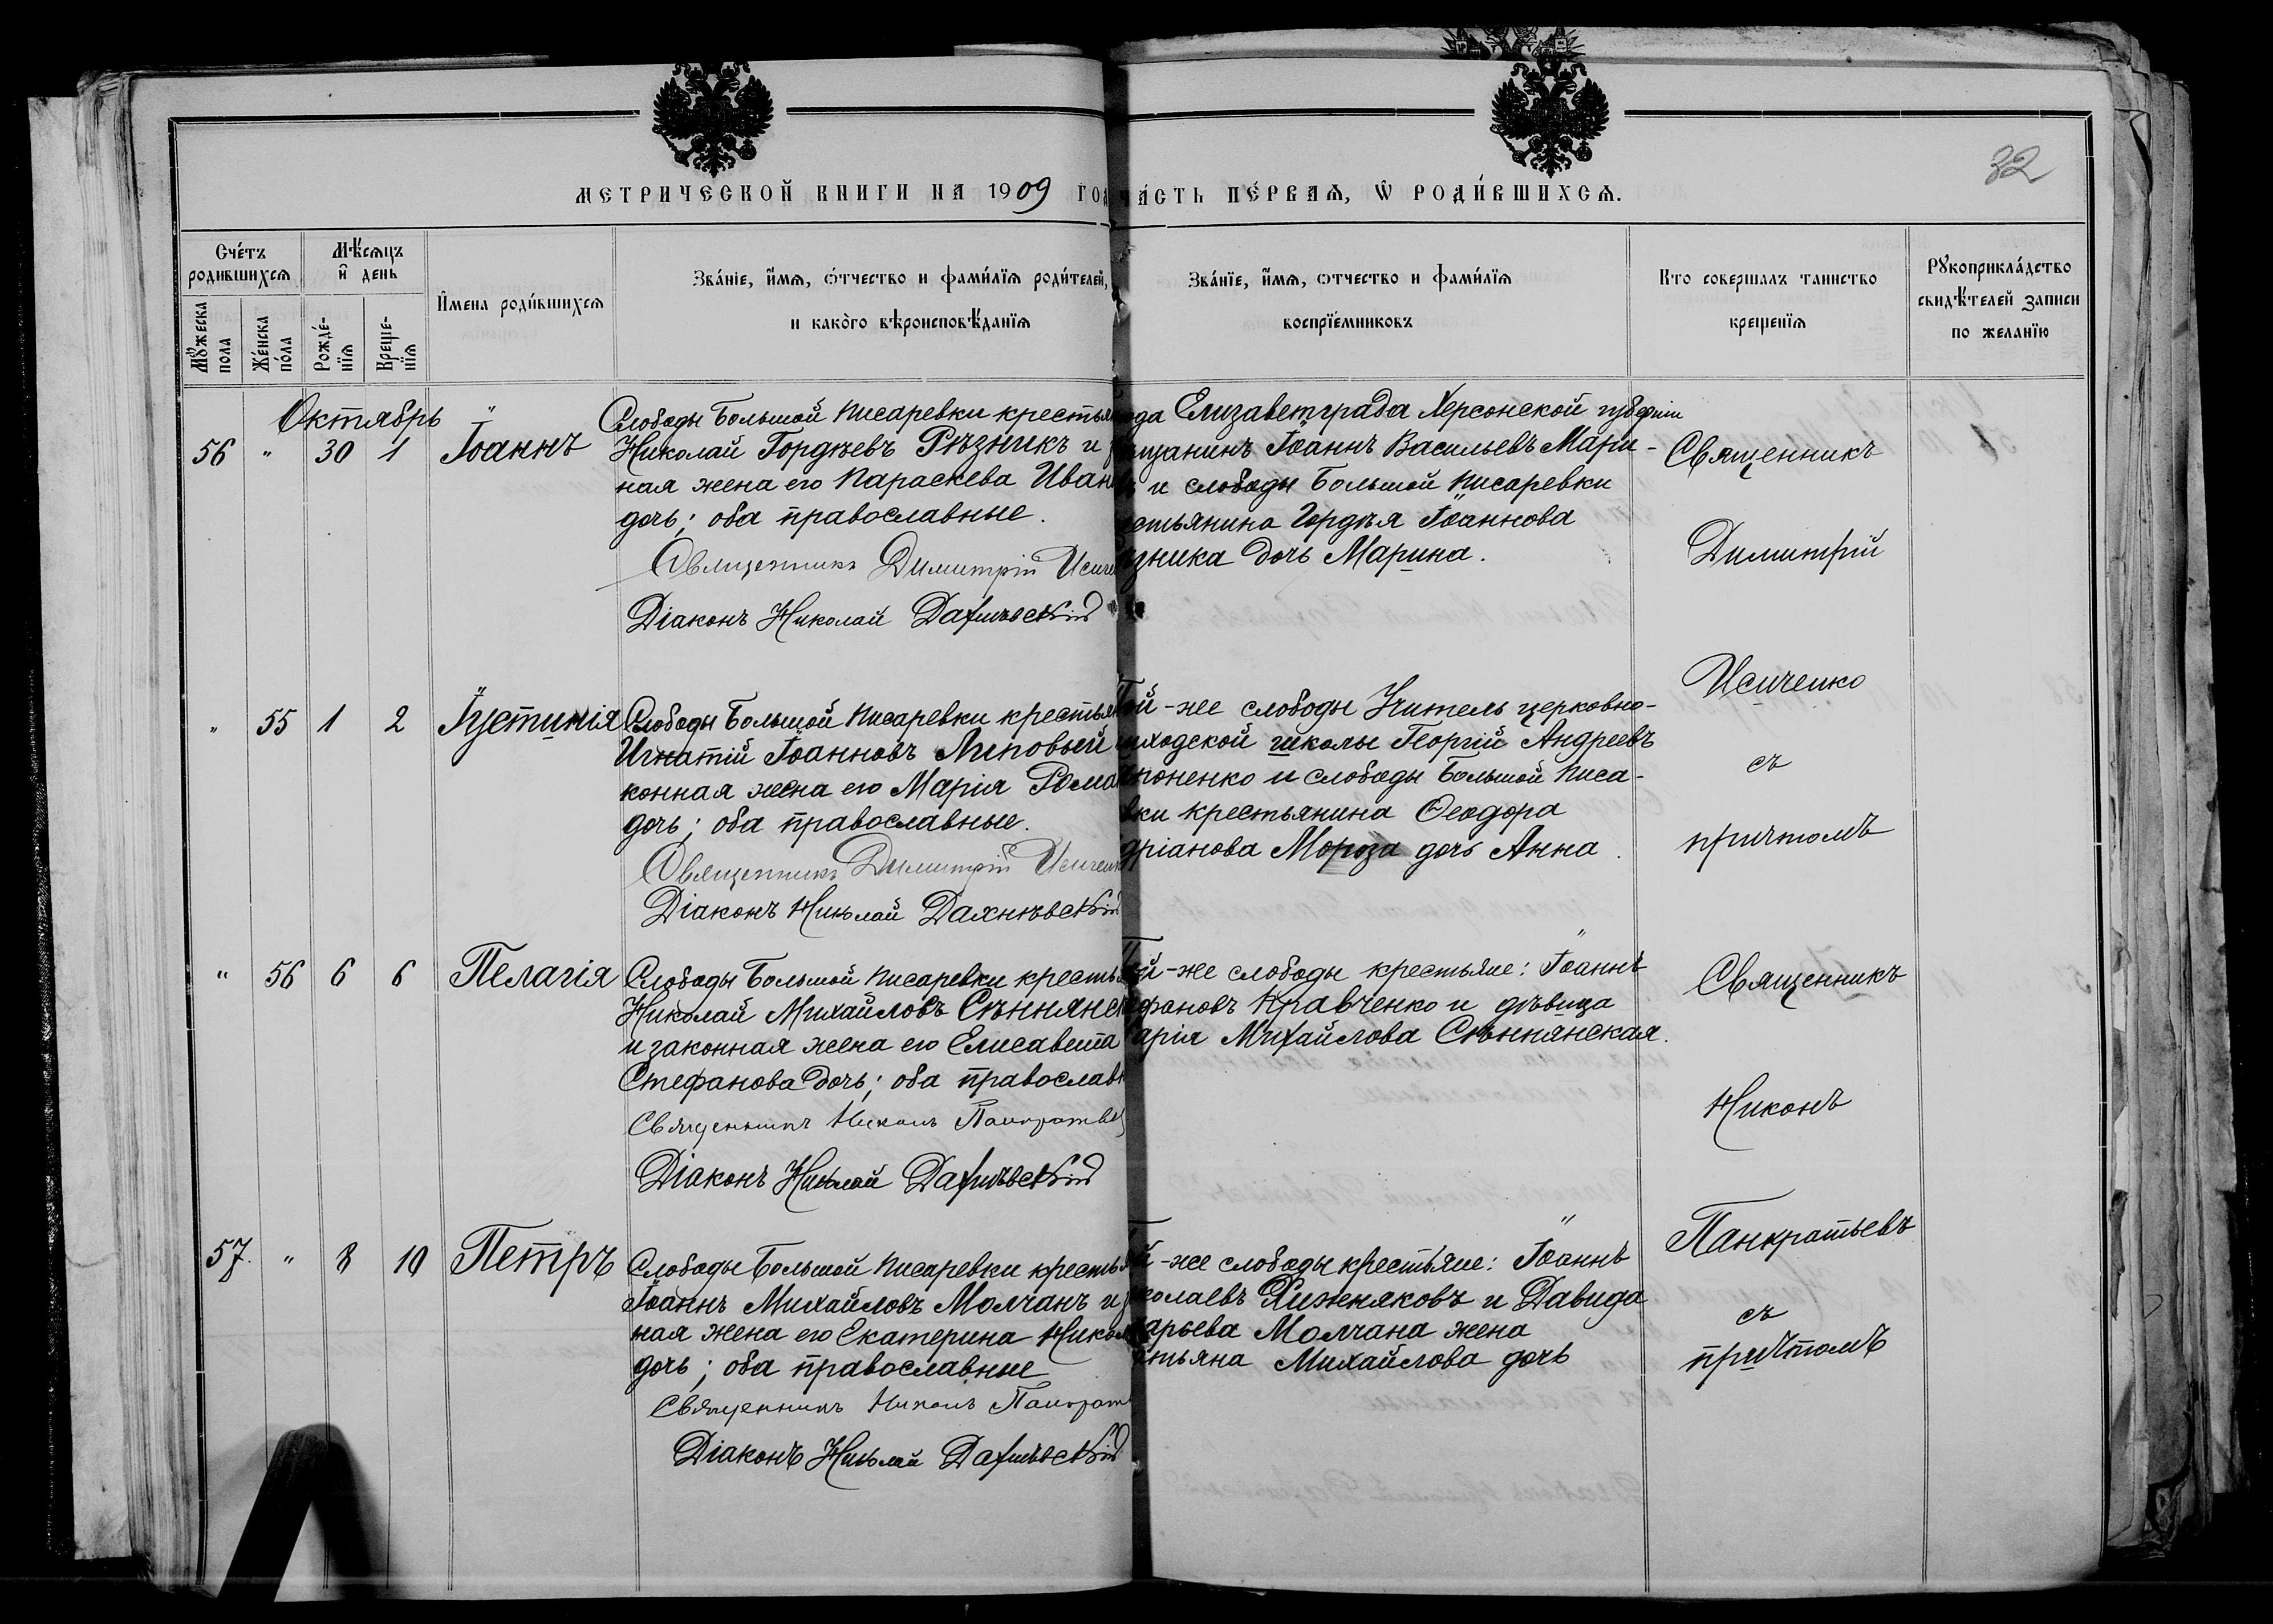 32
МЕТРИЧЕСКОЙ КНИГИ НА 1909 ГОД
ЧА́СТЬ ПЕ́РВАѦ, Ѡ РОДИ́ВШИХСѦ.
Сче́тъ родившихсѧ
Мꙋ́жеска пола
Же́нска по́ла
Мѣ́сѧцъ и день
Рожде́нїѧ
Креще-нїѧ
Имена роди́вшихсѧ
Зва́нїе, и́мѧ, ѻ́тчество и фами́лїѧ роди́телей,
и како́го вѣроисповѣ́данїѧ
Зва́нїе, и́мѧ, ѻтчество и фами́лїѧ
воспрїе́мниковъ
Кто совершалъ таинство
крещенїѧ
Рꙋкоприкла́дство
свидѣ́телей записи
по желанїю
Октябрь
56 " 30 1 Іоаннъ
Слободы Большой Писаревки крестья
Николай Гордѣевъ Рѣзникъ и з
ная жена его Параскева Иван
дочь; оба православные.
Священникъ Димитрій Исиче
Діаконъ Николай Дахнѣвскій
ода Елизаветграда Херсонской губерніи
ѣщанинъ Іоаннъ Васильевъ Мари-
и слободы Большой Писаревки
естьянина Гордѣя Іоаннова
ѣзника дочь Марина.
Священникъ
Димитрій
Исиченко
съ
причтомъ
" 55 1 2 Іустинія
Слободы Большой Писаревки крестья
Игнатій Іоанновъ Липовый
конная жена его Марія Рома
дочь; оба православные.
Священникъ Димитрій Исичен
Діаконъ Николай Дахнѣвскій
Той-же слободы Учитель церковно-
иходской школы Георгій Андреевъ
поненко и слободы Большой Писа-
вки крестьянина Ѳеодора
дріанова Мороза дочь Анна.
" 56 6 6 Пелагія
Слободы Большой Писаревки кресть
Николай Михайловъ Сѣннянск
и законная жена его Елисавета
Стефанова дочь; оба православ
Священникъ Никонъ Панкратьев
Діаконъ Николай Дахнѣвскій
Той-же слободы крестьяне: Іоаннъ
ефановъ Кравченко и дѣвица
арія Михайлова Сѣннянская.
Священникъ
Никонъ
Панкратьевъ
съ
причтомъ
57. " 8 10 Петръ
Слободы Большой Писаревки кресть
Іоаннъ Михайловъ Молчанъ и з
ная жена его Екатерина Никол
дочь; оба православные
Священникъ Никонъ Панкрат
Діаконъ Николай Дахнѣвскій
Той-же слободы крестьяне: Іоаннъ
колаевъ Хижняковъ и Давида
арьева Молчана жена
тьяна Михайлова дочь